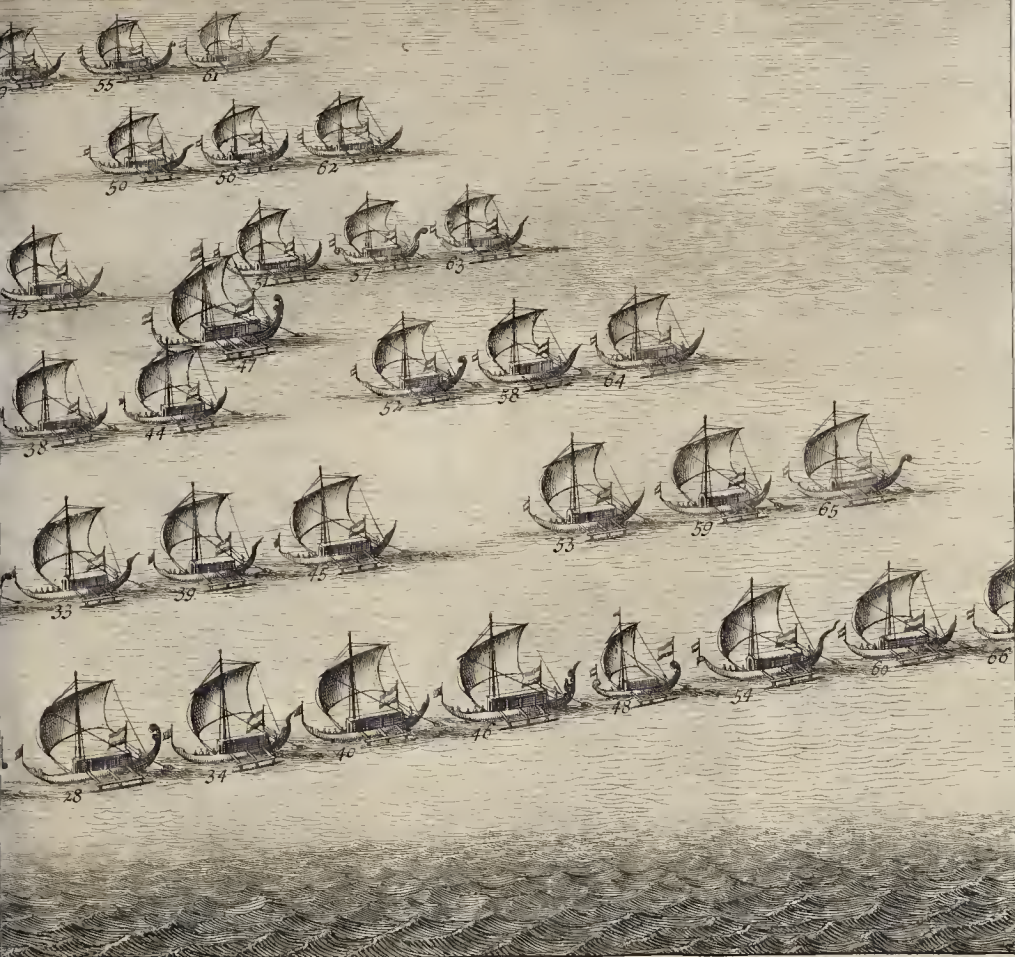 9 55 61
50 56 62
51 57 63
43
47
52 58 64
38 44
53 59 65
33 39 45
28 34 40 46 48 54 60 66